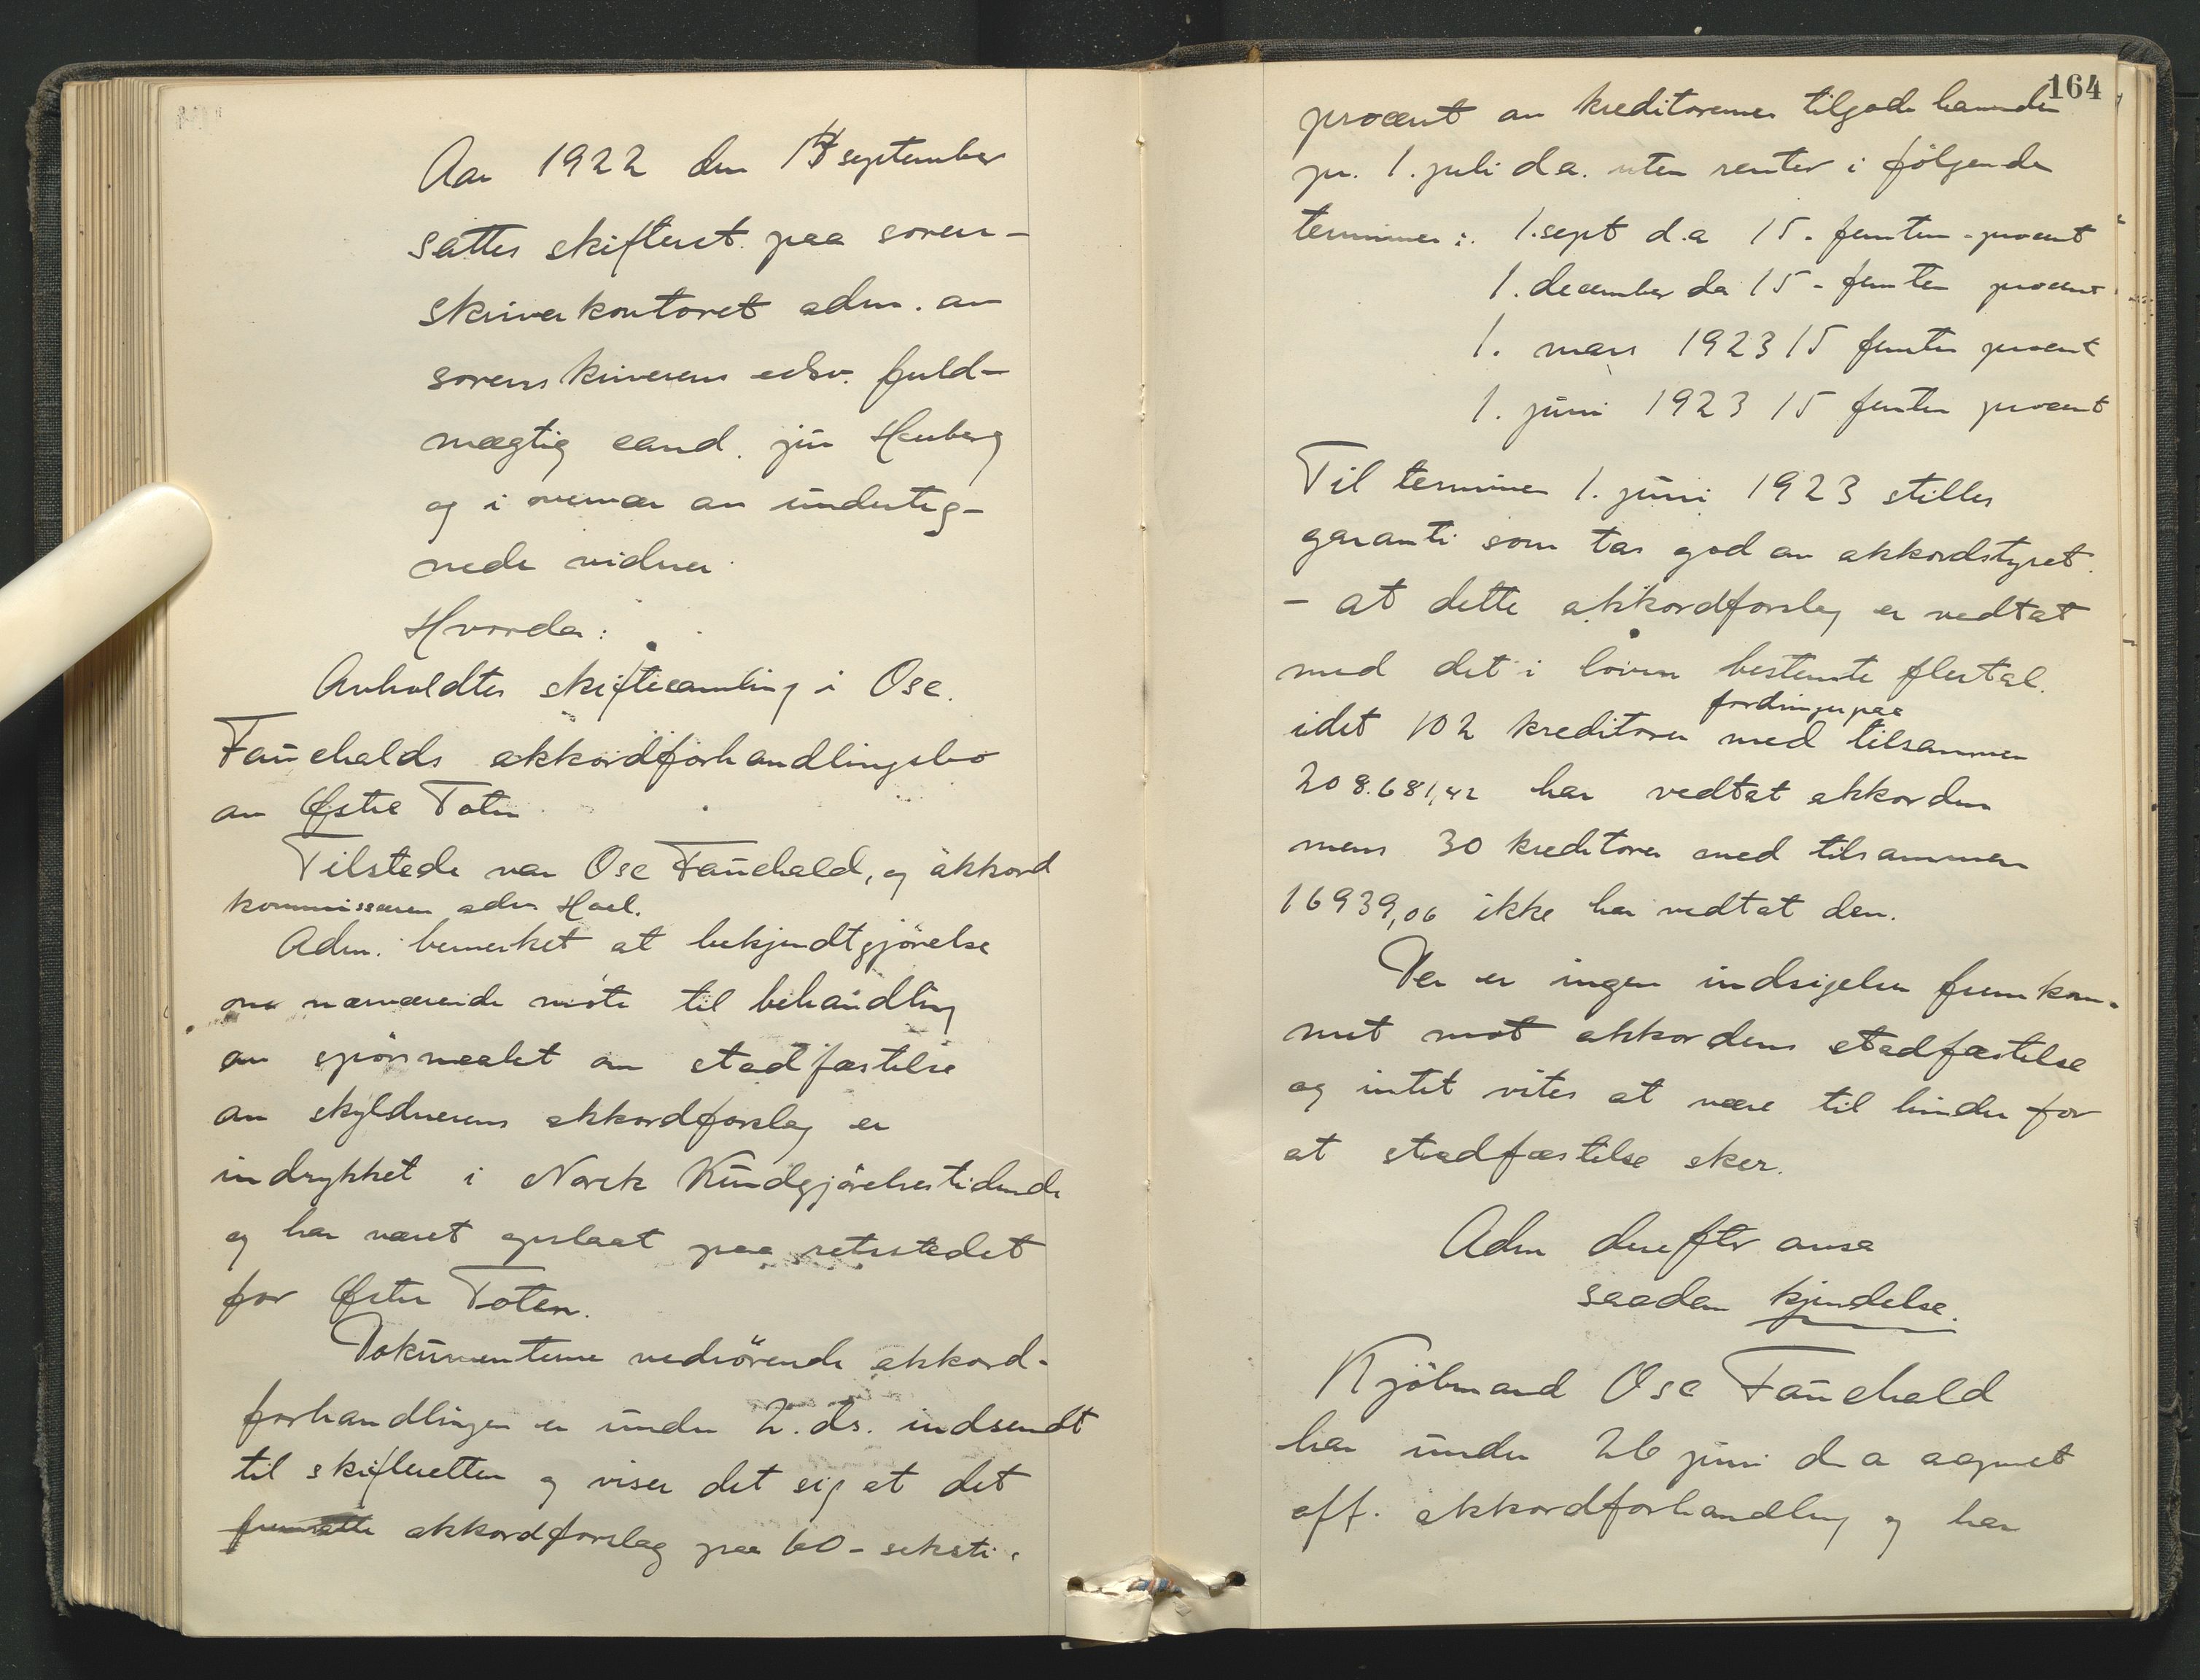 Aar 1922 den 14 september
sattes skifteret paa soren-
skriverkontoret adm. av
sorenskriverens edsv. fuld-
mægtig cand. jur
og i overvær av underteg-
nede vidner.
Hvorda:
Avholdtes skiftesamling i Ose
Fauchalds akkordforhandlingsbo
av Østre Toten
Tilstede var Ose Fauchald, og akkord
kommissæren adv. Hoel.
Adm. bemerket at bekjendtgjörelse
om nærværende möte til behandling
av spörsmaalet om stadfæstelse
av skyldnerens akkordforslag er
indrykket i Norsk Kundgjörelsestidende
og har været opslaat paa retsstedet
for Østre Toten.
Dokumenterne vedrörende akkord-
forhandlingen er under 2. ds. indsendt
til skifteretten og viser det sig at det
fremsatte akkordforslag paa 60 - seksti -
164
procent av kreditorernes tilgodehavender
pr. 1. juli d.a. uten renter i fölgende
terminer: 1. sept d.a 15 - femten - procent
1. december da 15 - femten procent
1. mars 1923 15 femten procent
1. juni 1923 15 femten procent
Til terminen 1. juni 1923 stilles
garanti som tas god av akkordstyret.
- at dette akkordforslag er vedtat
med det i loven bestemte flertal.
fordringer paa
idet 102 kreditorer med tilsammen
208.681,42 har vedtat akkorden
mens 30 kreditorer med tilsammen
16939,06 ikke har vedtat den.
Der er ingen indsigelser fremkom-
met mot akkordens stadfæstelse
og intet vites at være til hinder for
at stadfæstelse sker.
Adm derefter avsa
saadan kjendelse.
Kjöbmand Ose Fauchald
har under 26 juni d a aapnet
off. akkordforhandling og har